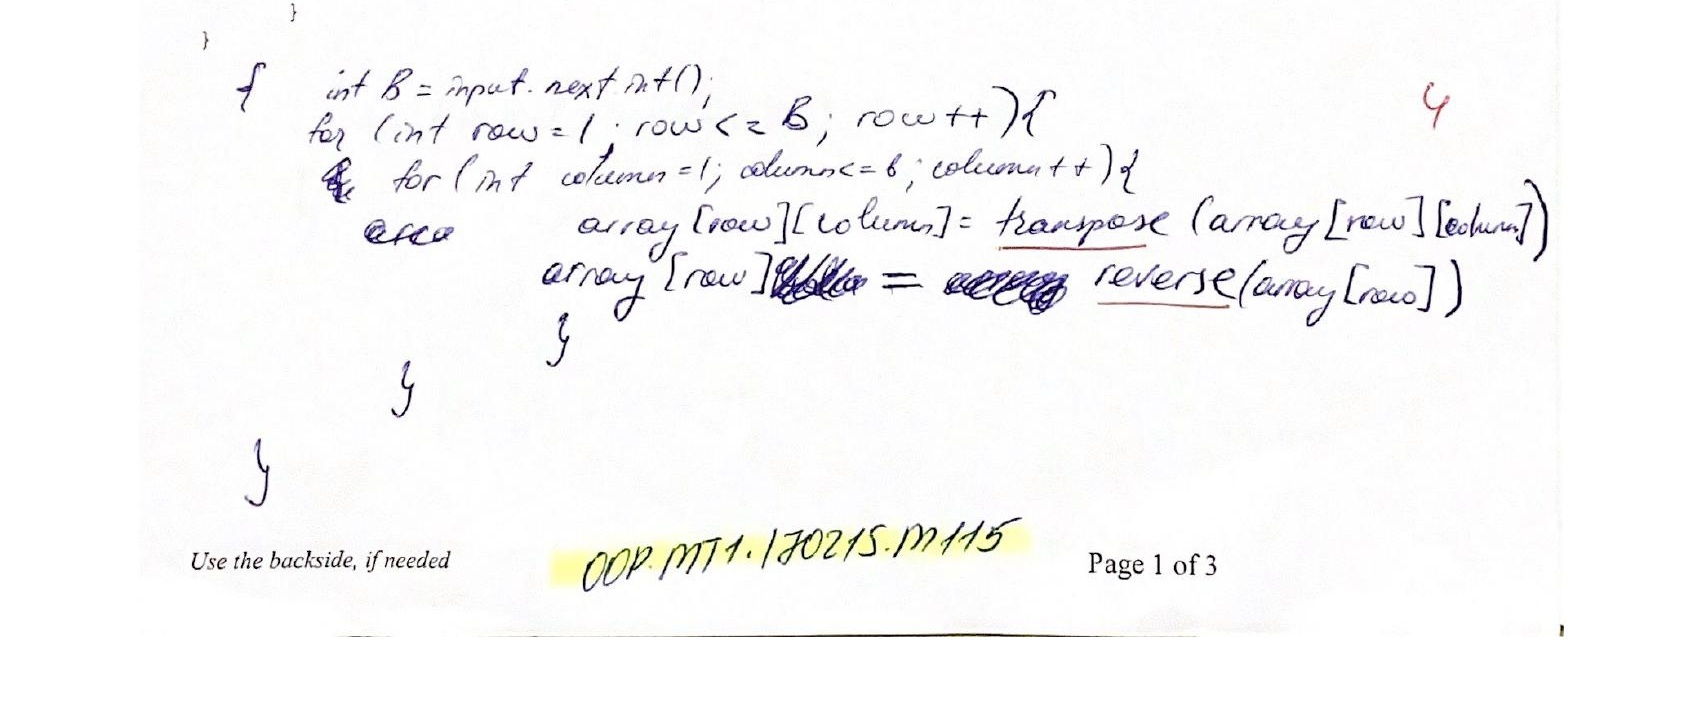 }
}
{ int B = input.next int();
for (int row = 1; row <= B; row++){
for (int column = 1; column <= 6; column++){
array[row][column] = transpose (array[row][column])
array[row] = reverse(array[row])
}
}
}
4
Use the backside, if needed
OOP.MT1.170215.M115
Page 1 of 3